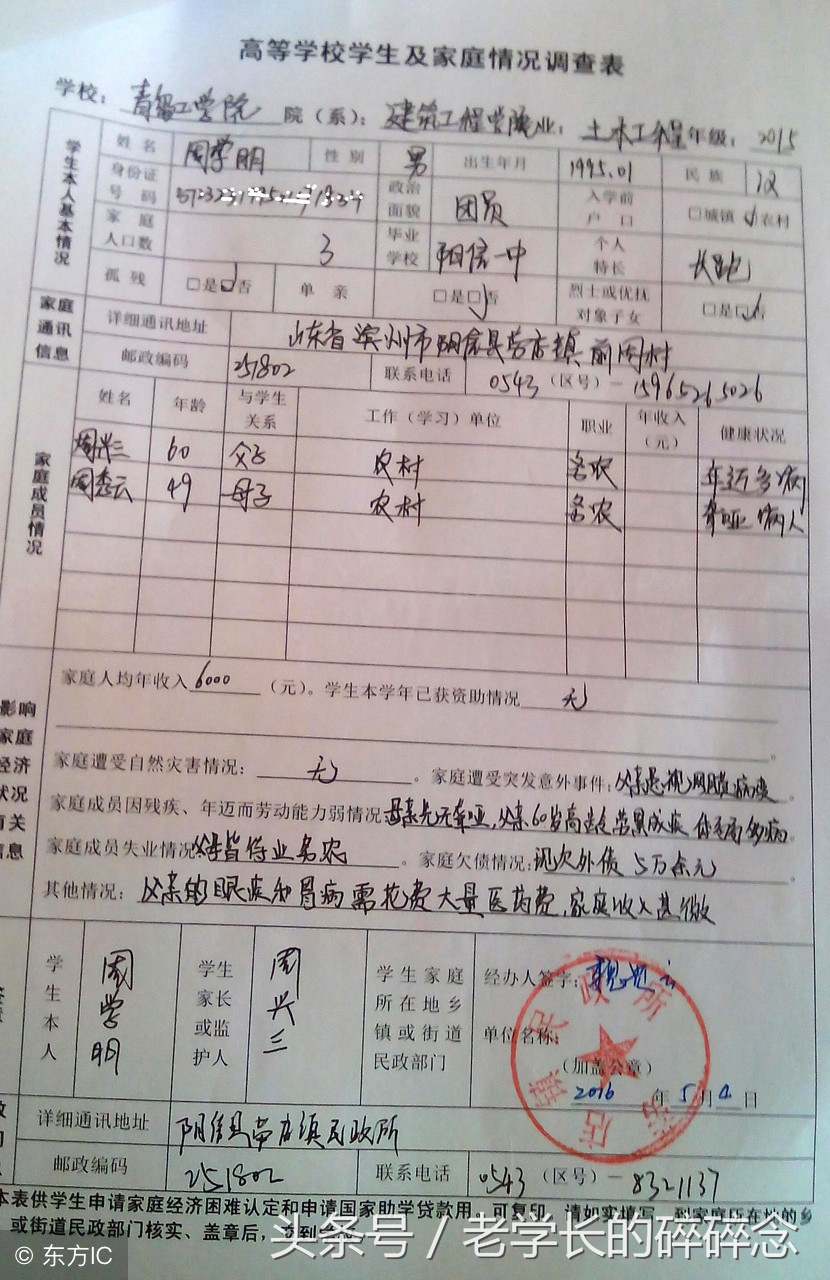 高等学校学生及家庭情况调查表
学校：青岛工学院 院（系）：建筑工程学院 业：土木工程 年级：2015
学生本人基本情况
姓名 周学明 性别 男 出生年月 1995.01 民族 汉
身份证号码 政治面貌 团员 入学前户口 □城镇 ☑农村
家庭人口数 3 毕业学校 阳信一中 个人特长 长跑
孤残 □是☑否 单亲 □是☑否 烈士或优抚对象子女 □是☑否
家庭通讯信息
详细通讯地址 山东省滨州市阳信县劳店镇前周村
邮政编码 251802 联系电话 0543（区号）－15965265026
家庭成员情况
姓名 年龄 与学生关系 工作（学习）单位 职业 年收入（元） 健康状况
周兴三 60 父子 农村 务农 年迈多病
周秀云 49 母子 农村 务农 聋哑病人
影响家庭经济状况有关信息
家庭人均年收入6000（元）。学生本学年已获资助情况 无
家庭遭受自然灾害情况：无。家庭遭受突发意外事件：父亲患视网膜病变。
家庭成员因残疾、年迈而劳动能力弱情况 母亲先天聋哑，父亲60岁高龄 劳累成疾 体弱多病。
家庭成员失业情况 父母皆待业务农。家庭欠债情况：现欠外债5万余元。
其他情况：父亲的眼疾和胃病需花费大量医药费，家庭收入甚微
学生本人 周学明 学生家长或监护人 周兴三 学生家庭所在地乡镇或街道民政部门 经办人签字：
单位名称：
（加盖公章）
2016年5月4日
劳店镇民政所
详细通讯地址 阳信县劳店镇民政所
邮政编码 251802 联系电话 0543（区号）－8321137
本表供学生申请家庭经济困难认定和申请国家助学贷款用，可复印。请如实填写，到家庭所在地的乡
或街道民政部门核实、盖章后，交到
头条号 / 老学长的碎碎念
© 东方IC